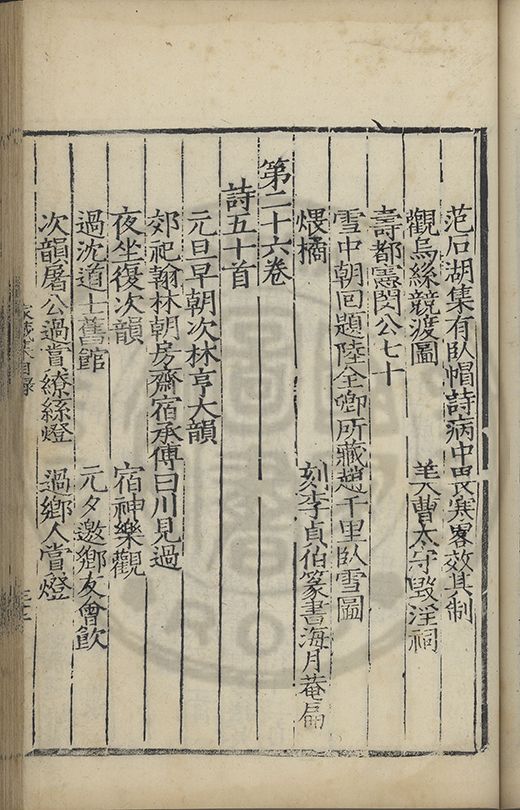 范石湖集有臥帽詩病中畏寒畧效其制
觀烏絲競渡圖 美曹太守毀淫祠
壽都憲閔公七十
雪中朝回題陸全卿所藏趙千里臥雪圖
煨橘 刻李貞伯篆書海月菴扁
第二十六卷
詩五十首
元旦早朝次林亨大韻
郊祀翰林朝房齋宿承傅曰川見過
夜坐復次韻 宿神樂觀
過沈道士舊館 元夕邀鄉友會飲
次韻屠公過嘗繚絲燈 過鄉人賞燈
家藏集目錄